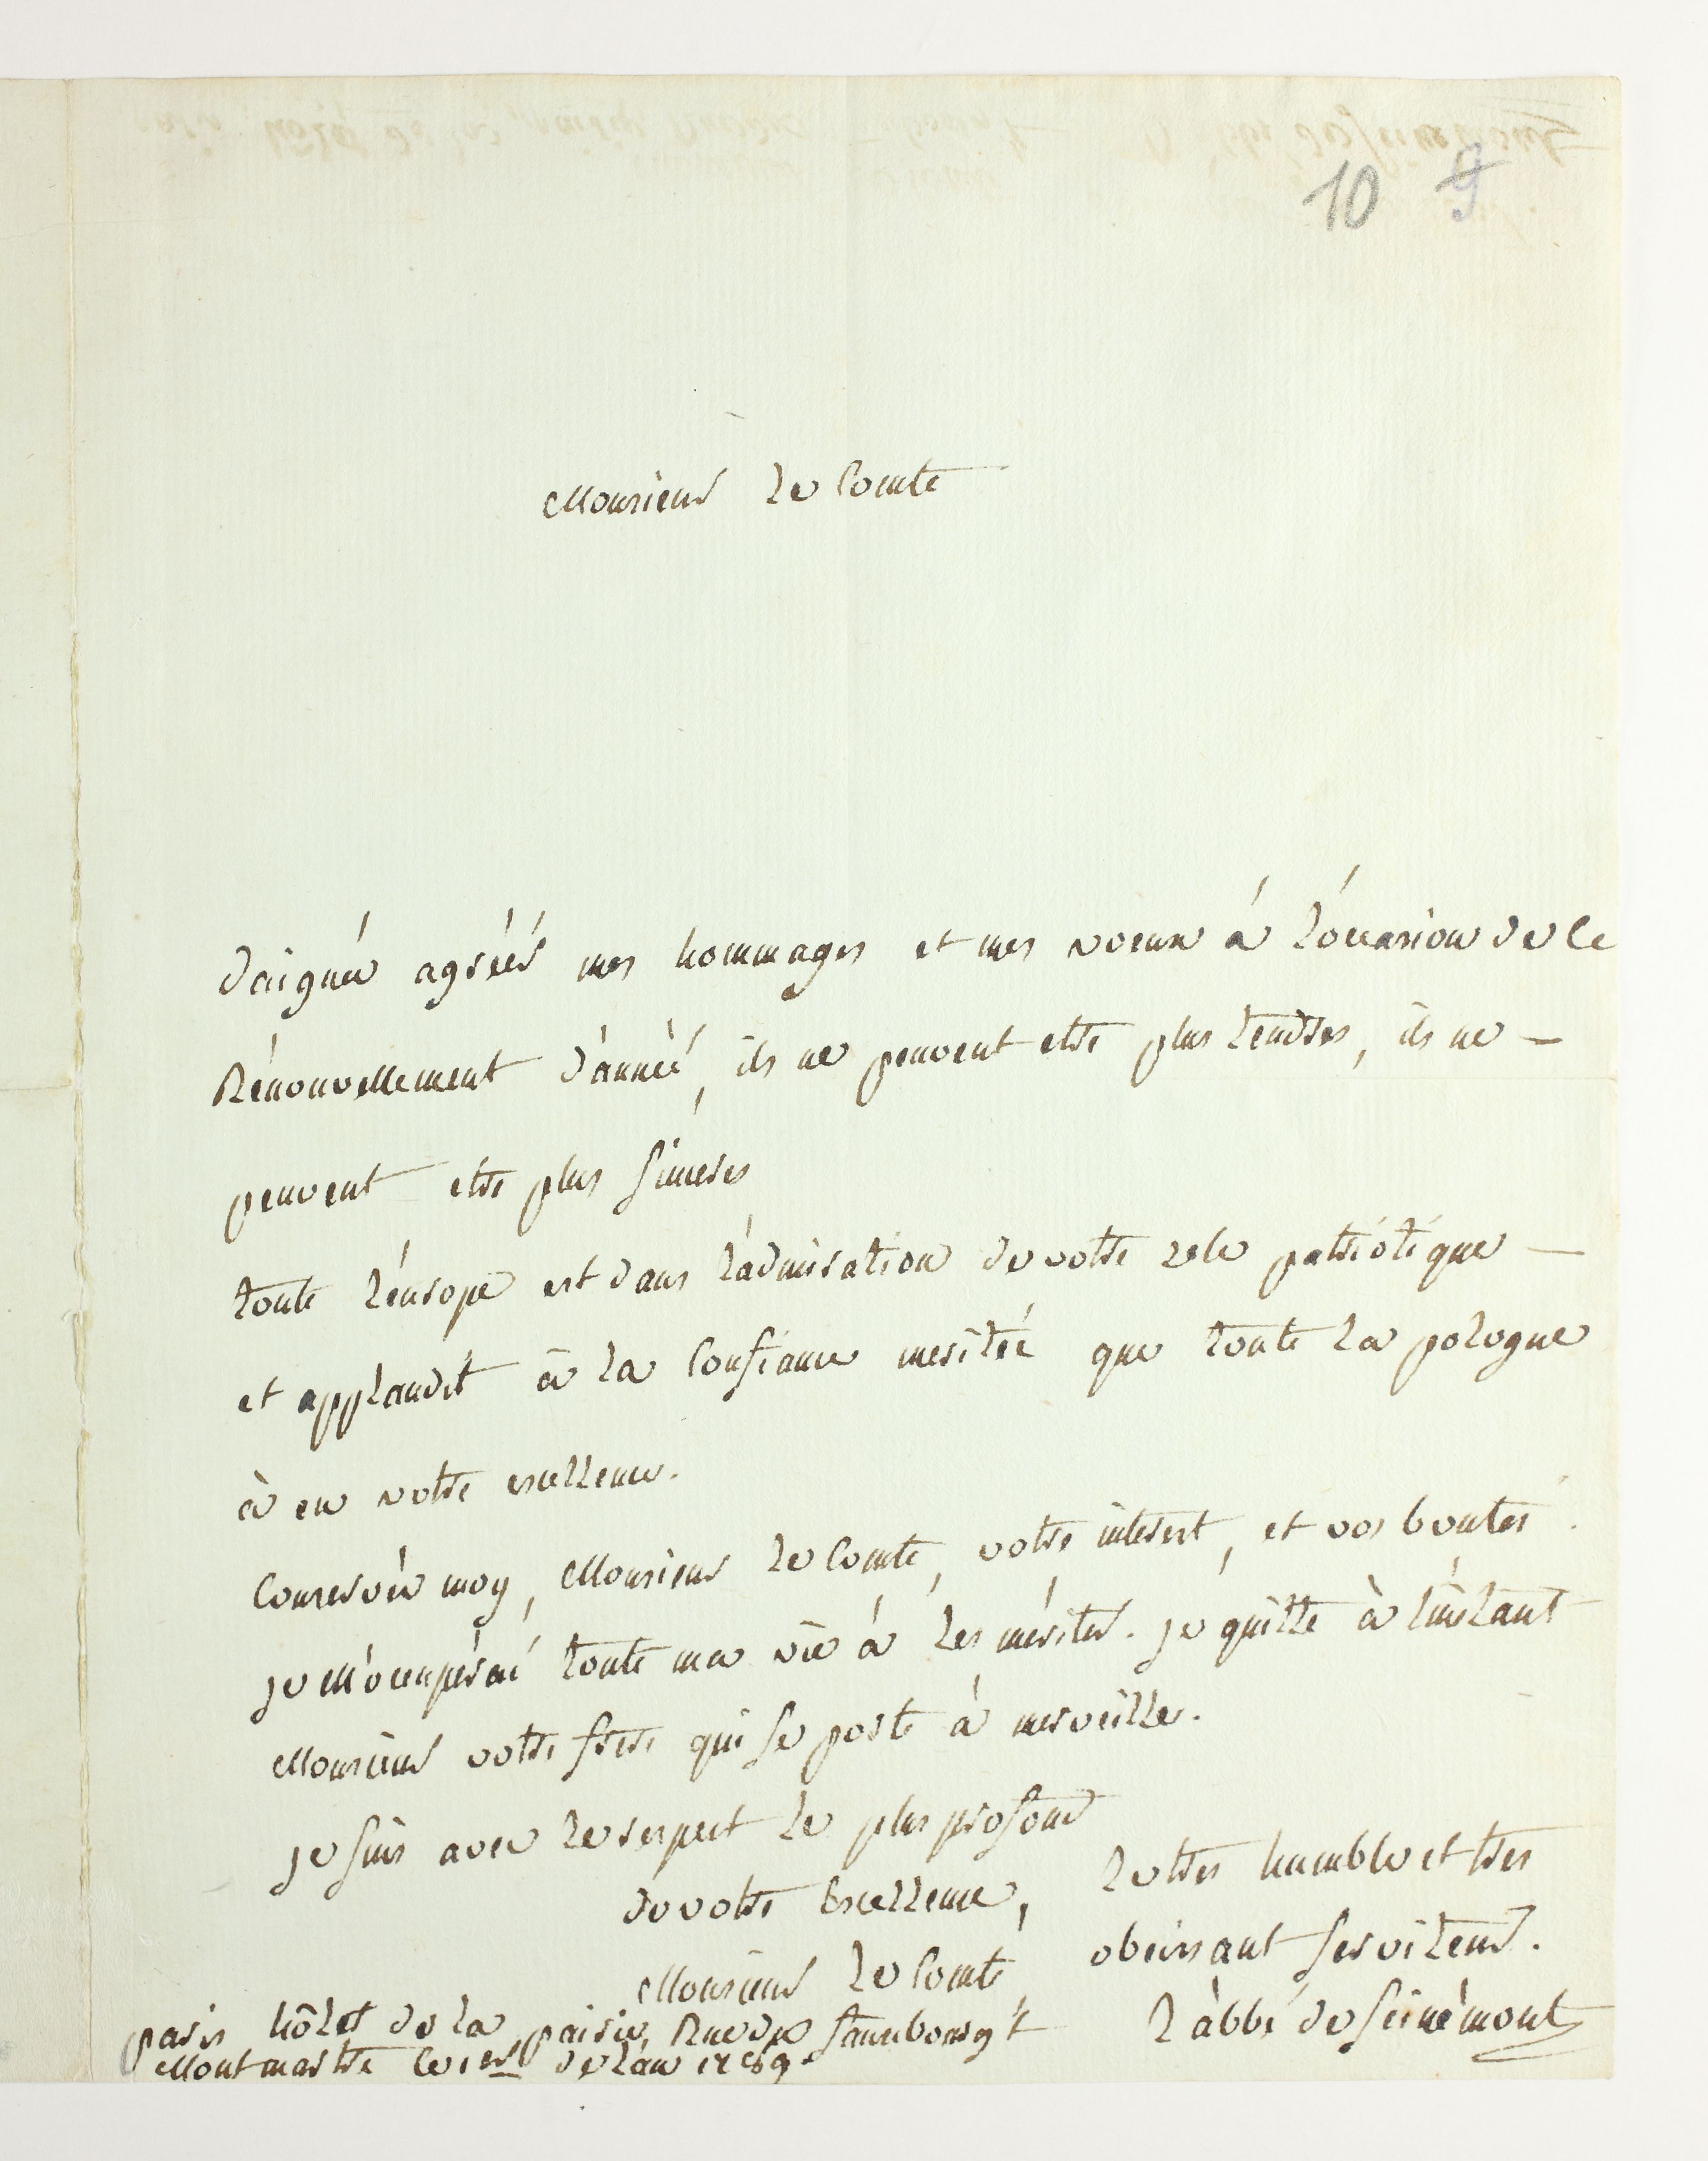 10 9
Monsieur le Comte
daignéz agréér mes hommages et mes voeux à l'óccasion de ce
Rénouvellement d'année, ils ne peuvent etre plus tendres, ils ne —
peuvent etre plus sinceres
toute l'éurope est dans l'admiration de votre zele patriótique —
et applaudit à la Confiance meritée que toute la pologne
à en votre excellence.
Conservéz moy, Monsieur le Comte, votre interest, et vos bontés.
je m'occupérai toute ma vie à les mériter. je quitte à l'instant
Monsieur votre frere qui se porte à merveille.
je suis avec le respect le plus profond
de votre Excellence,
Monsieur le Comte
le tres humble et tres
obeissant serviteur.
l'àbbé de seinémont
paris hôlet de la pairie, Rue du fauxbourg
Montmartre ce 1er de l'an 1789.